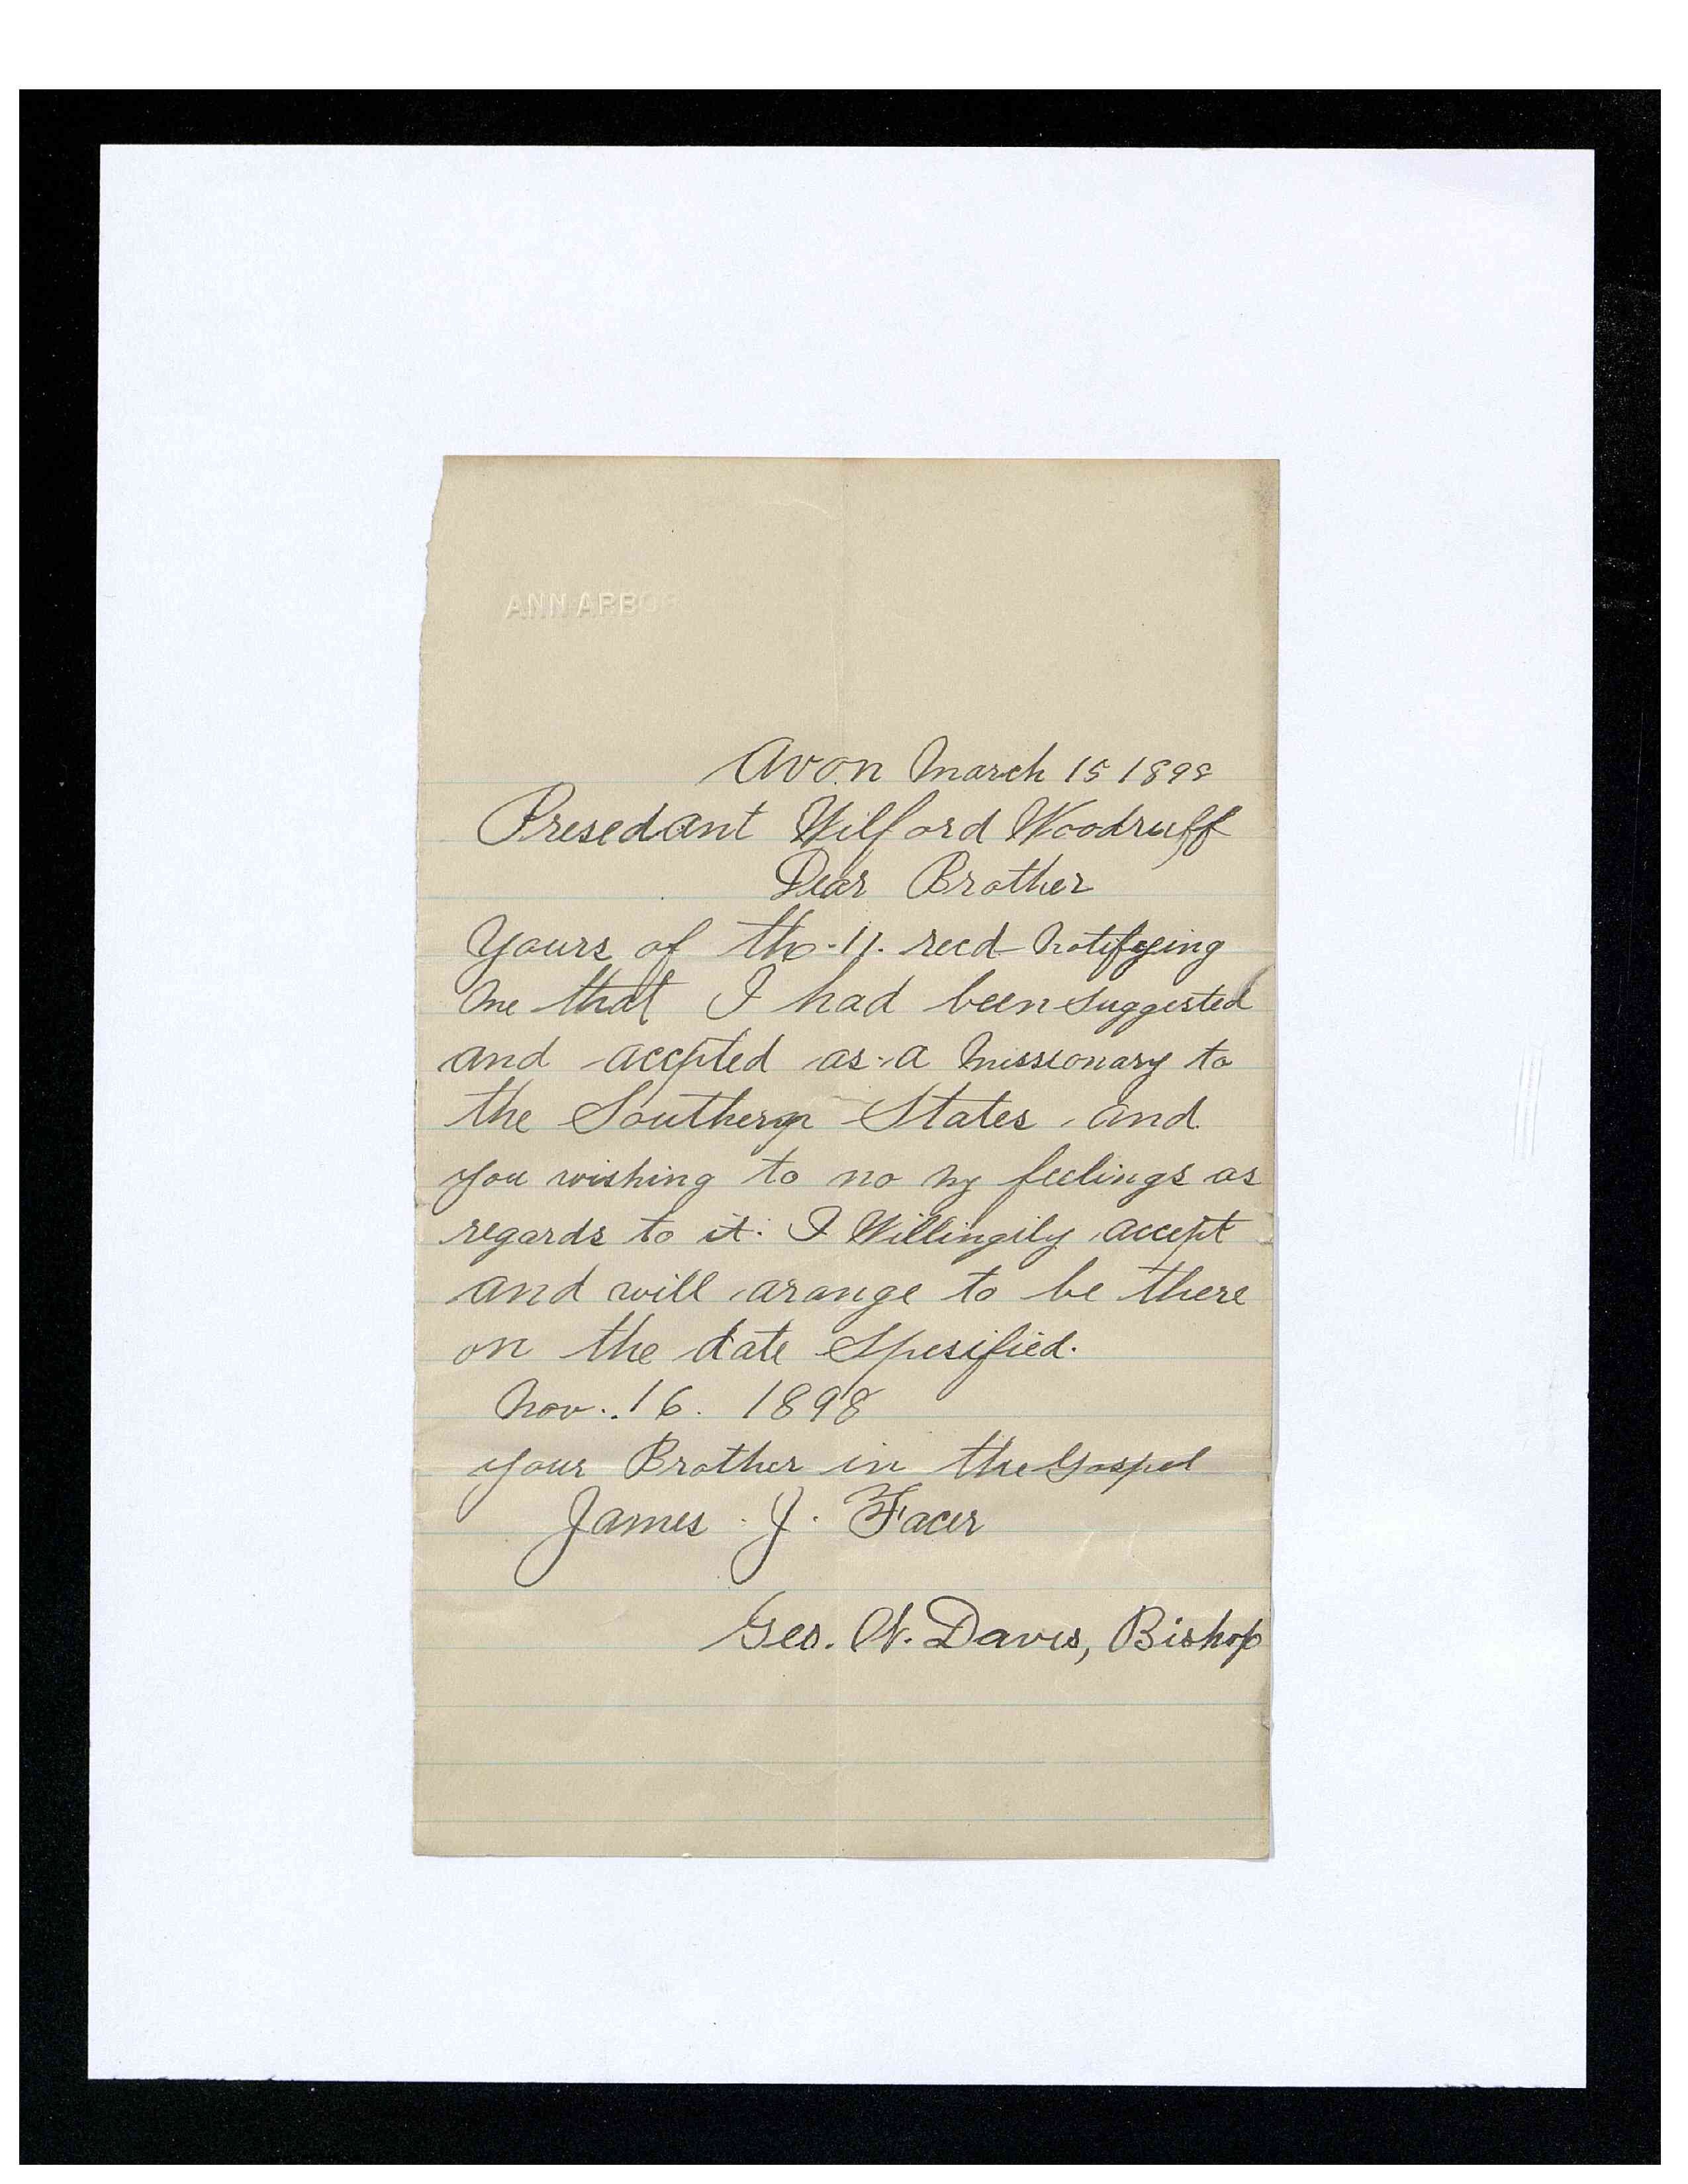 ANN ARBOR
Avon March 15 1898
Presedant Wilford Woodruff
Dear Brother
Yours of the 11. recd Notifying
me that I had been suggested
and accpted as a missionary to
the Southern States and
you wishing to no my feelings as
regards to it. I Willingily accept
and will arange to be there
on the date Spesified.
Nov. 16. 1898
your Brother in the Gospel
James J. Facer
Geo. W. Davis, Bishop